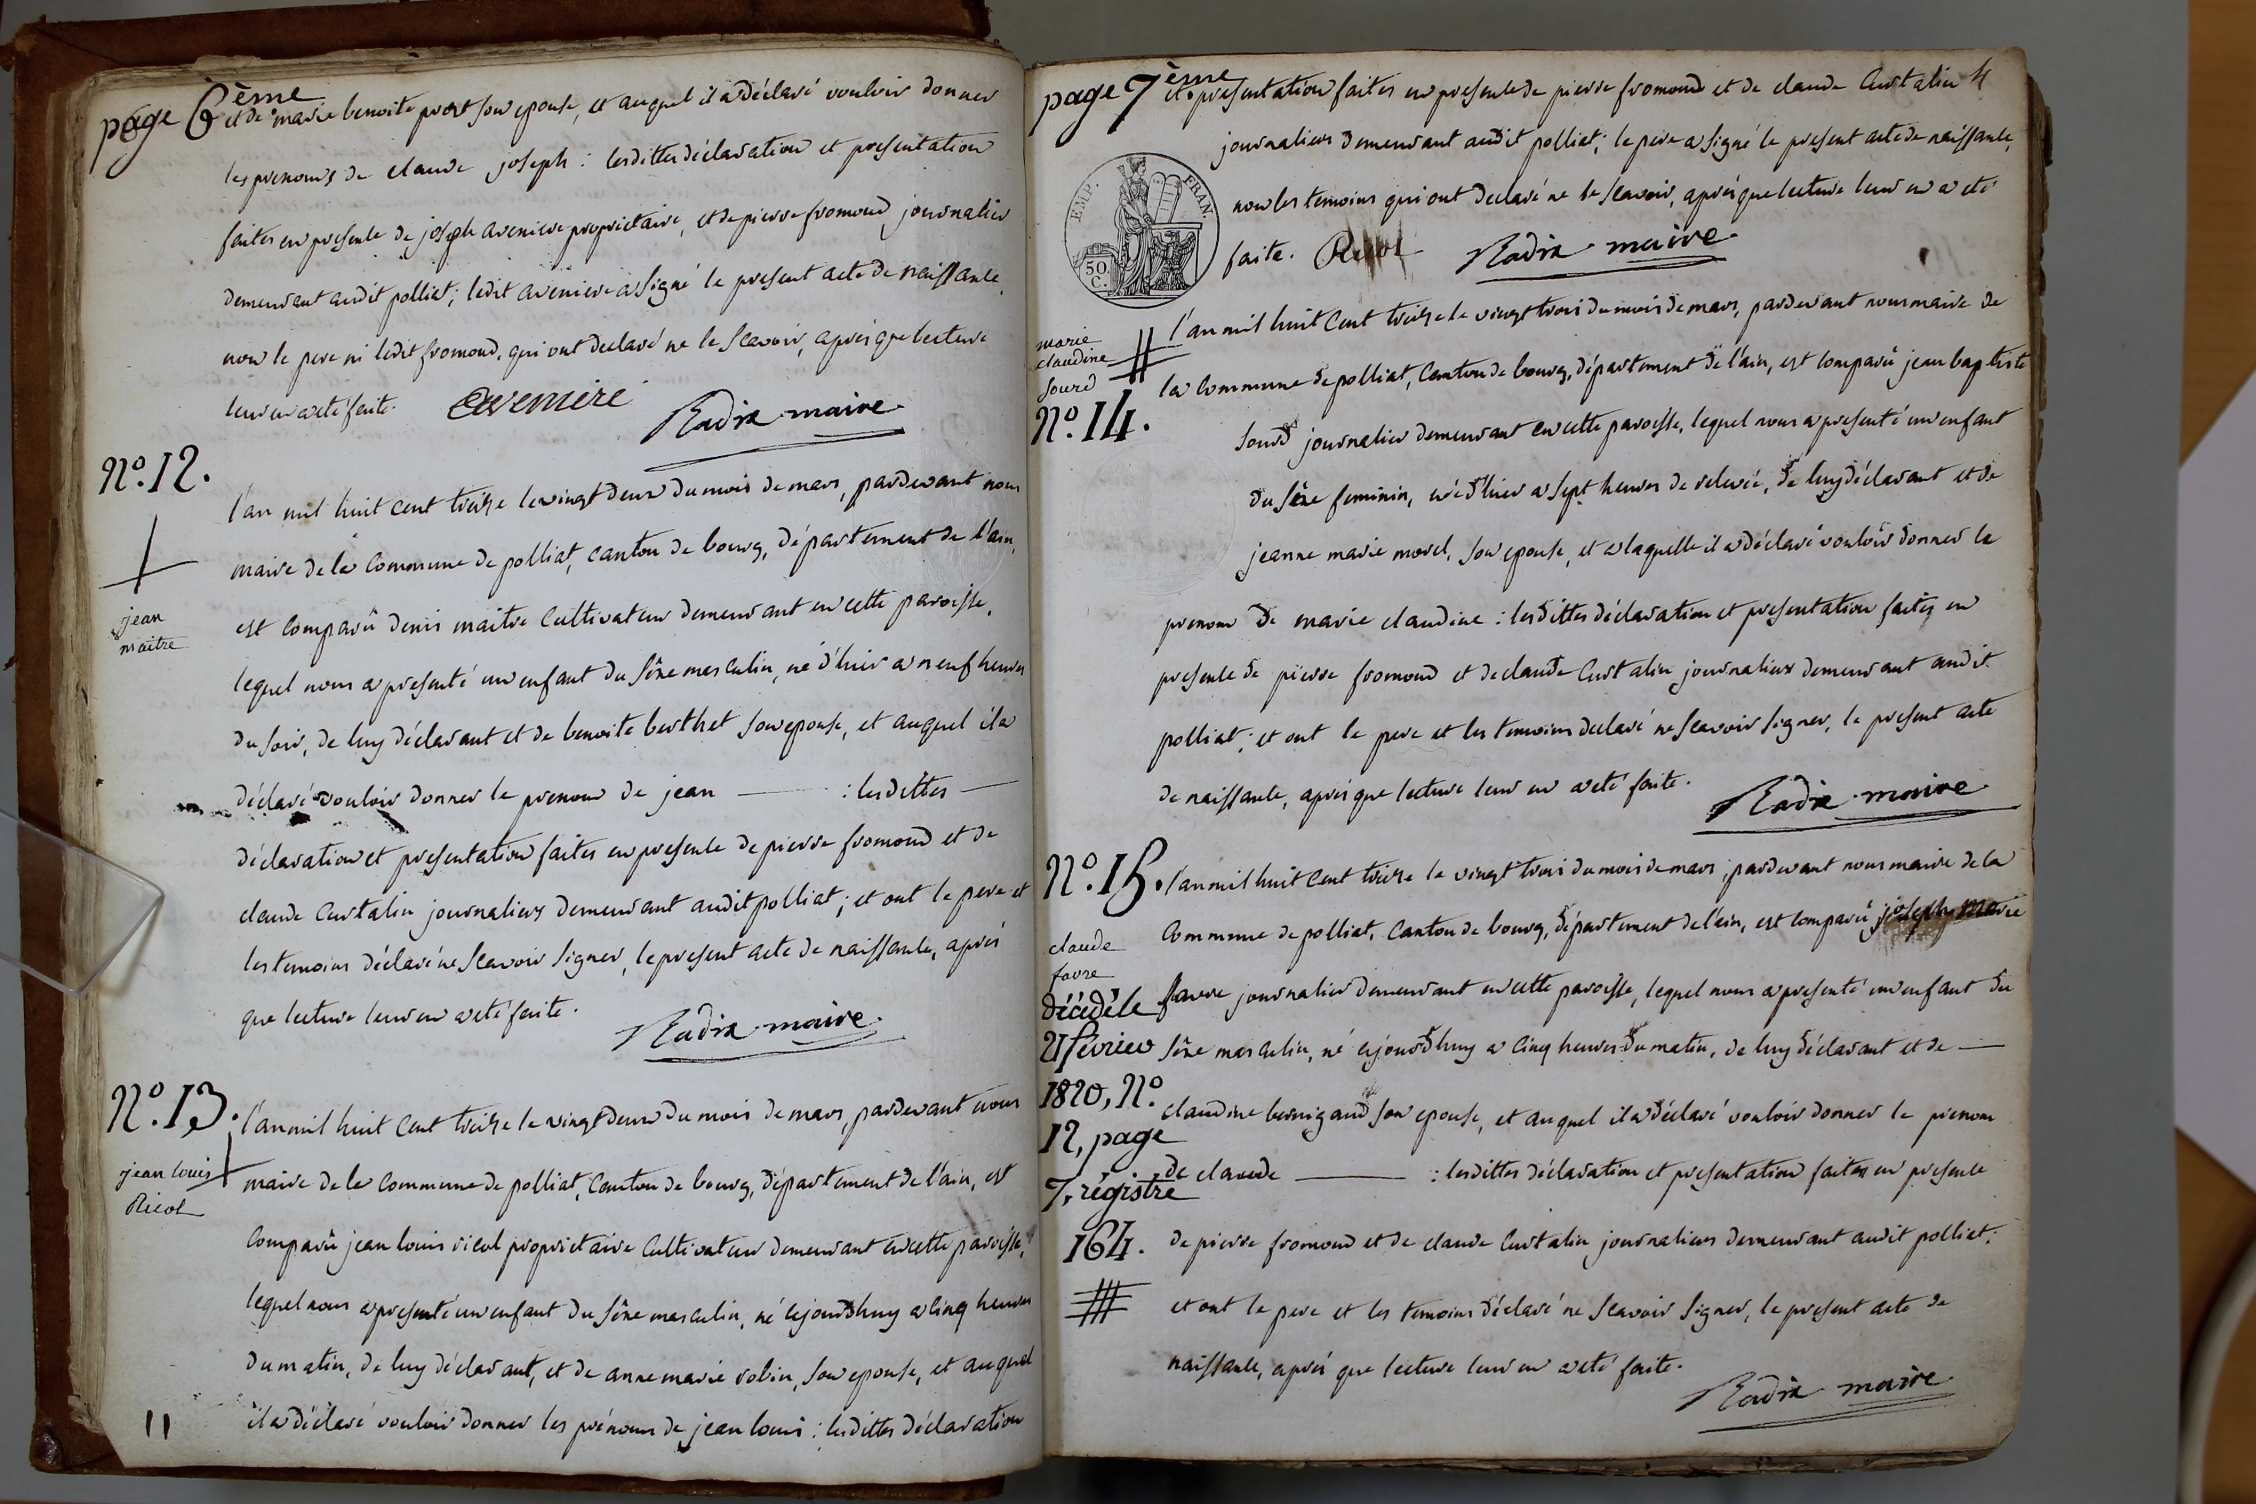 page 6ème
et de marie benoite prost son epouse, et auquel il a déclaré vouloir donner
les prenoms de claude joseph : lesdittes déclaration et presentation
faites en presence de joseph aveniere proprietaire, et de pierre fromond journalier
demeurant audit polliat ; ledit aveniere a signé le present acte de naissance,
non le pere ni ledit fromond, qui ont declaré ne le scavoir, après que lecture
leur en a eté faite. avenière
Nadix maire
N.º 12.
jean
maitre
l'an mil huit cent treize le vingt deux du mois de mars, pardevant nous
maire de la commune de polliat, canton de bourg, département de l'ain,
est comparû denis maitre cultivateur demeurant en cette paroisse,
lequel nous a presenté un enfant du sêxe masculin, né d'hier a neuf heures
du soir, de luy déclarant et de benoite berthet son epouse, et auquel il a
déclaré vouloir donner le prenom de jean : lesdittes
déclaration et presentation faites en presence de pierre fromond et de
claude curtalin journaliers demeurant audit polliat ; et ont le pere et
les temoins déclaré ne scavoir signer, le present acte de naissance, après
que lecture leur en a eté faite.
Nadix maire
N.º 13.
jean louis
Ricol
l'an mil huit cent treize le vingt deux du mois de mars, pardevant nous
maire de la commune de polliat, canton de bourg, département de l'ain, est
comparû jean louis ricol proprietaire cultivateur demeurant en cette paroisse,
lequel nous a presenté un enfant du sêxe masculin, né cejourdhuy a cinq heures
du matin, de luy déclarant, et de anne marie robin, son epouse, et auquel
il a déclaré vouloir donner les prénoms de jean louis : lesdittes déclaration
11
page 7ème
et presentation faites en presence de pierre fromond et de claude curtalin 4
journaliers demeurant audit polliat ; le pere a signé le present acte de naissance,
non les temoins qui ont declaré ne le scavoir, après que lecture leur en a eté
faite. Ricol Nadix maire
EMP. FRAN.
50.
C.
marie
claudine
sourd
N.º 14.
l'an mil huit cent treize le vingt trois du mois de mars, pardevant nous maire de
la commune de polliat, canton de bourg, département de l'ain, est comparû jean baptiste
sourd journalier demeurant en cette paroisse, lequel nous a presenté un enfant
du sêxe feminin, né d'hier a sept heures de relevée, de luy déclarant et de
jeanne marie morel, son epouse, et a laquelle il a déclaré vouloir donner le
prenom de marie claudine : lesdittes déclaration et presentation faites en
presence de pierre fromond et de claude curtalin journaliers demeurant audit
polliat ; et ont le pere et les temoins declaré ne scavoir signer, le present acte
de naissance, après que lecture leur en a eté faite.
Nadix maire
N.º 15.
claude
favre
décédé le
21 février
1820, N.º
12, page
7, régistre
164.
l'an mil huit cent treize le vingt trois du mois de mars, pardevant nous maire de la
commune de polliat, canton de bourg, département de l'ain, est comparû joseph marie
favre journalier demeurant en cette paroisse, lequel nous a presenté un enfant du
sêxe masculin, né cejourdhuy a cinq heures du matin, de luy déclarant et de
claudine bernigaud son epouse, et auquel il a déclaré vouloir donner le prenom
de claude : lesdittes déclaration et presentation faites en presence
de pierre fromond et de claude curtalin journaliers demeurant audit polliat ;
et ont le pere et les temoins déclaré ne scavoir signer, le present acte de
naissance, après que lecture leur en a eté faite.
Nadix maire